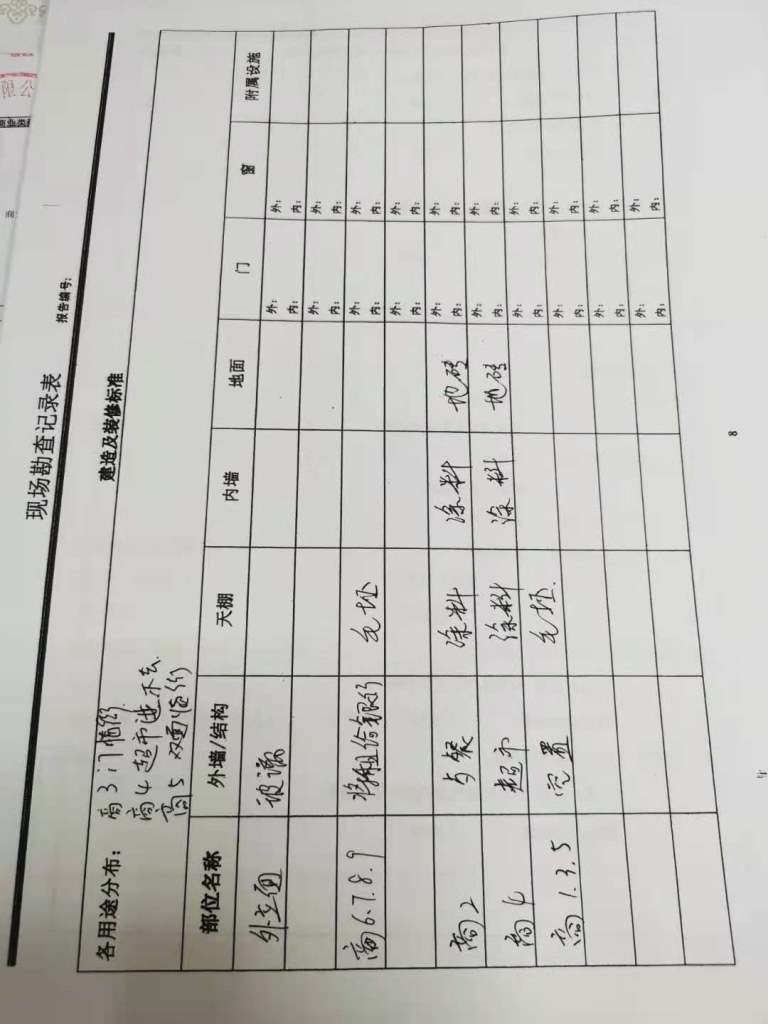 现场勘查记录表
报告编号：
建造及装修标准
各用途分布： 商3门临街
商4超市进不去
商5双面临街
部位名称 外墙/结构 天棚 内墙 地面 门 窗 附属设施
外立面 玻璃 外： 内： 外： 内：
外： 内： 外： 内：
商6.7.8.9 将租给银行 毛坯 外： 内： 外： 内：
外： 内： 外： 内：
商2 餐 涂料 涂料 地砖 外： 内： 外： 内：
商4 超市 涂料 涂料 地砖 外： 内： 外： 内：
商1.3.5 空置 毛坯 外： 内： 外： 内：
外： 内： 外： 内：
外： 内： 外： 内：
外： 内： 外： 内：
8